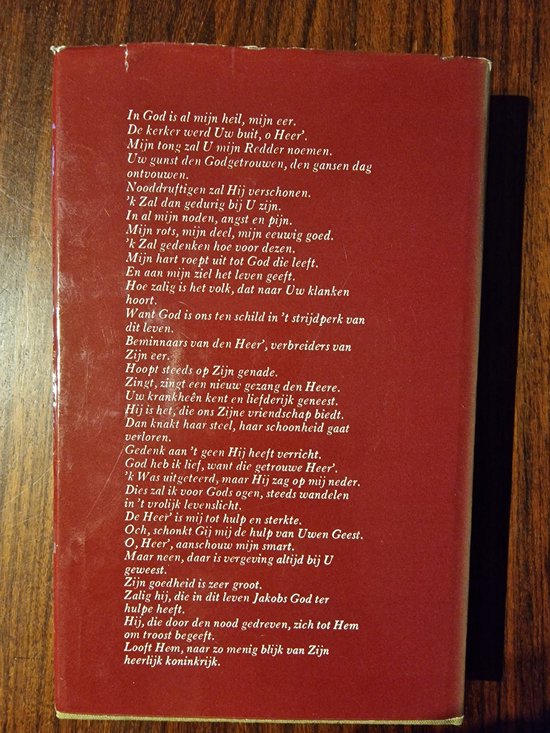 In God is al mijn heil, mijn eer.
De kerker werd Uw buit, o Heer'.
Mijn tong zal U mijn Redder noemen.
Uw gunst den Godgetrouwen, den gansen dag
ontvouwen.
Nooddruftigen zal Hij verschonen.
'k Zal dan gedurig bij U zijn.
In al mijn noden, angst en pijn.
Mijn rots, mijn deel, mijn eeuwig goed.
'k Zal gedenken hoe voor dezen.
Mijn hart roept uit tot God die leeft.
En aan mijn ziel het leven geeft.
Hoe zalig is het volk, dat naar Uw klanken
hoort.
Want God is ons ten schild in 't strijdperk van
dit leven.
Beminnaars van den Heer', verbreiders van
Zijn eer.
Hoopt steeds op Zijn genade.
Zingt, zingt een nieuw gezang den Heere.
Uw krankheên kent en liefderijk geneest.
Hij is het, die ons Zijne vriendschap biedt.
Dan knakt haar steel, haar schoonheid gaat
verloren.
Gedenk aan 't geen Hij heeft verricht.
God heb ik lief, want die getrouwe Heer'.
'k Was uitgeteerd, maar Hij zag op mij neder.
Dies zal ik voor Gods ogen, steeds wandelen
in 't vrolijk levenslicht.
De Heer' is mij tot hulp en sterkte.
Och, schonkt Gij mij de hulp van Uwen Geest.
O, Heer', aanschouw mijn smart.
Maar neen, daar is vergeving altijd bij U
geweest.
Zijn goedheid is zeer groot.
Zalig hij, die in dit leven Jakobs God ter
hulpe heeft.
Hij, die door den nood gedreven, zich tot Hem
om troost begeeft.
Looft Hem, naar zo menig blijk van Zijn
heerlijk koninkrijk.